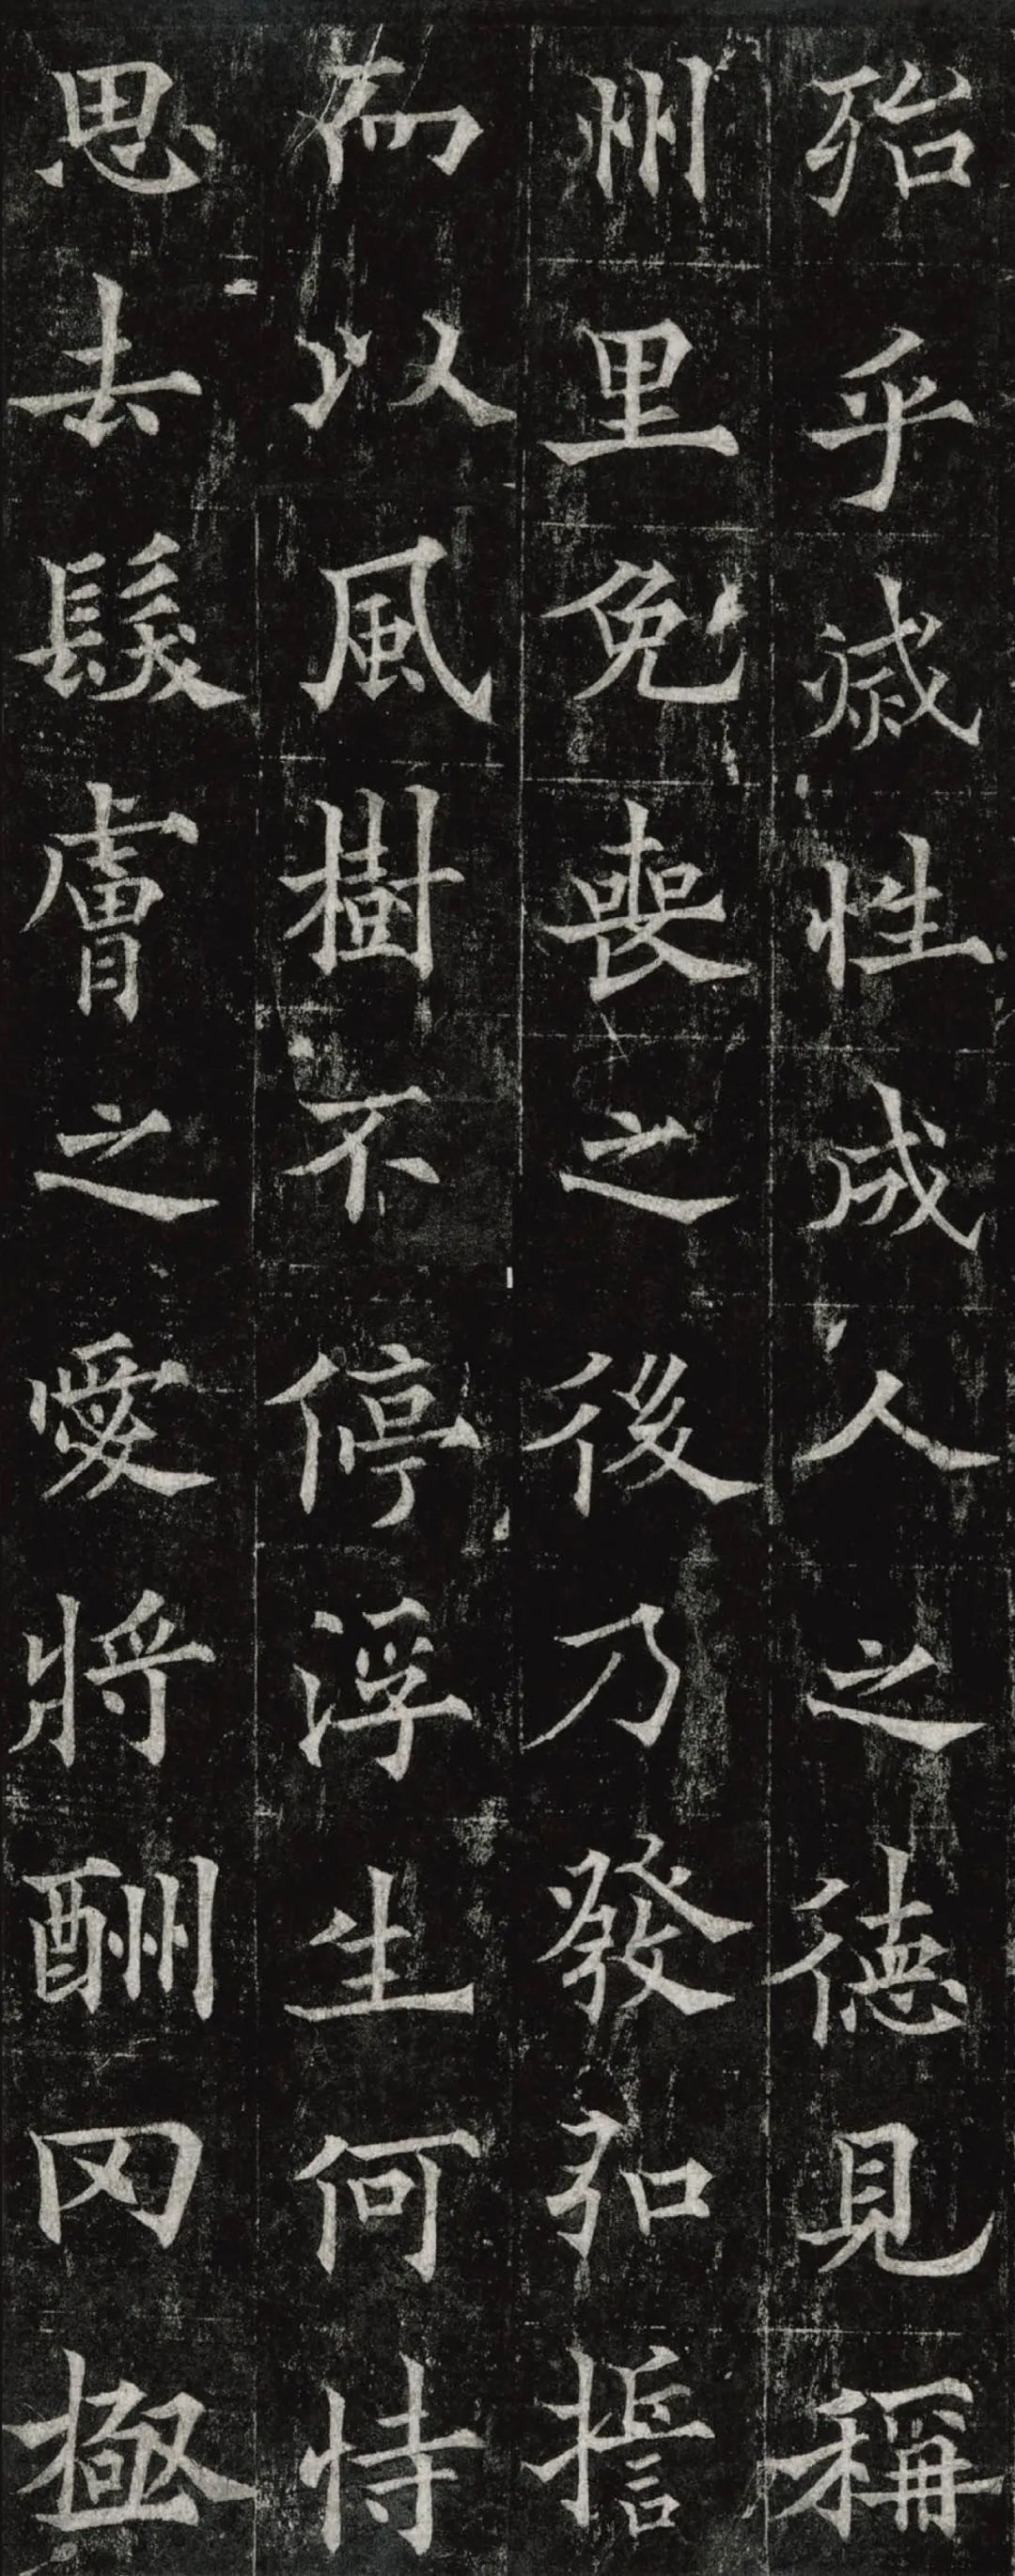 殆乎滅性成人之德見稱
州里免喪之後乃發弘誓
而以風樹不停浮生何恃
思去髮膚之愛將酬罔極